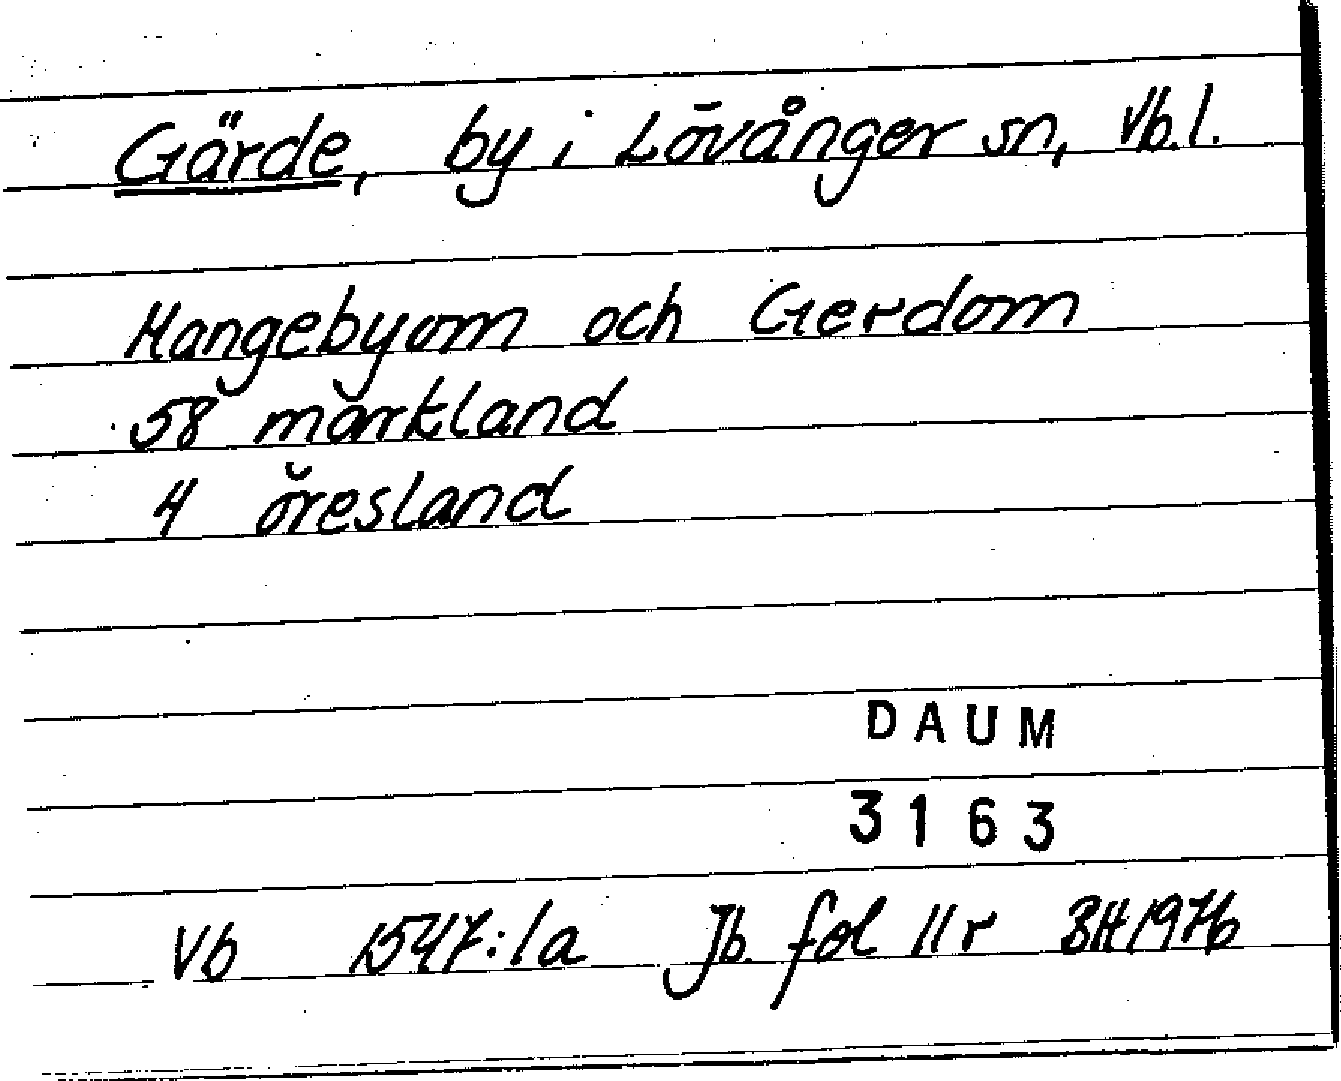 Gärde, by i Lövånger sn, Vb.l.
Mangebyom och Gerdom
58 markland
4 öresland
DAUM
3163
Vb 1547:1a Jb fol 11r BH 1976